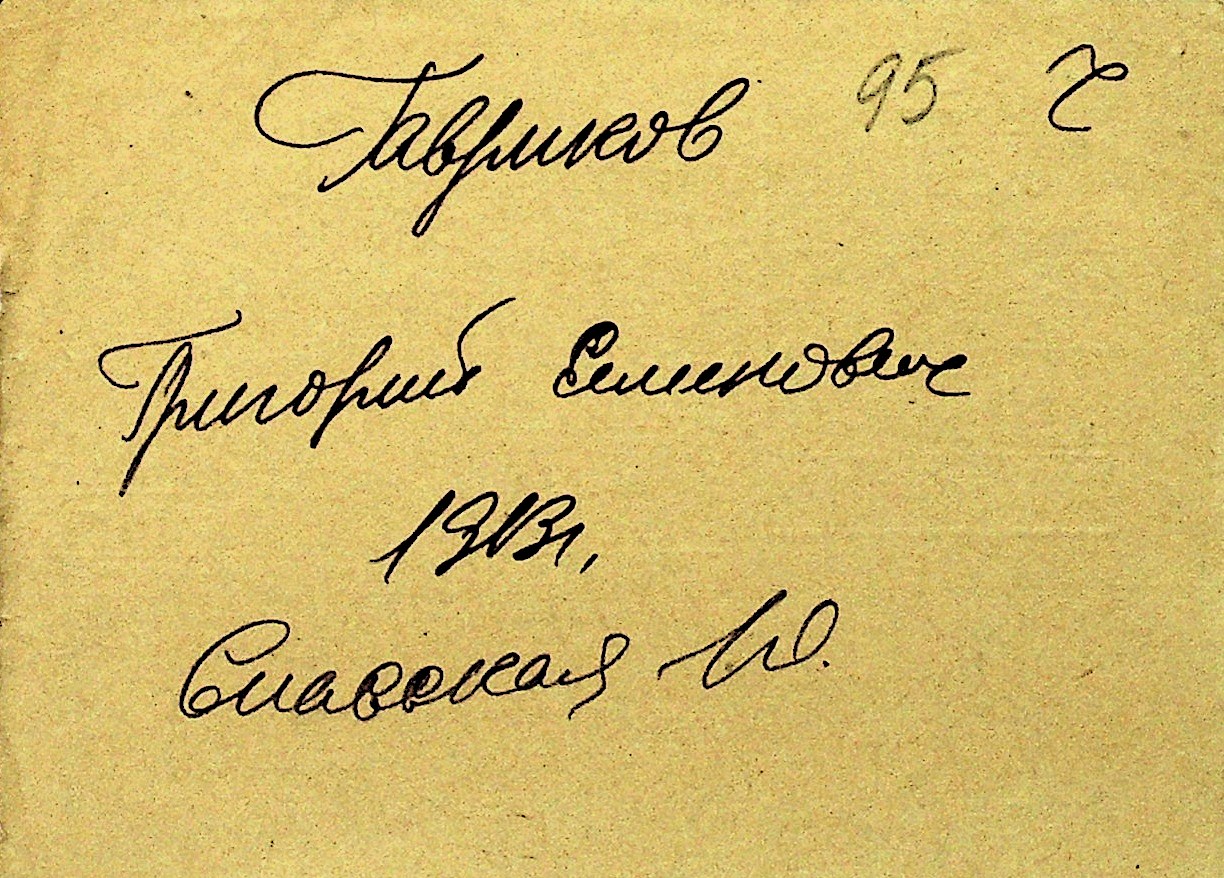 Гавриков 95
Григорий Семенович
1913г,
Спасская Ю.